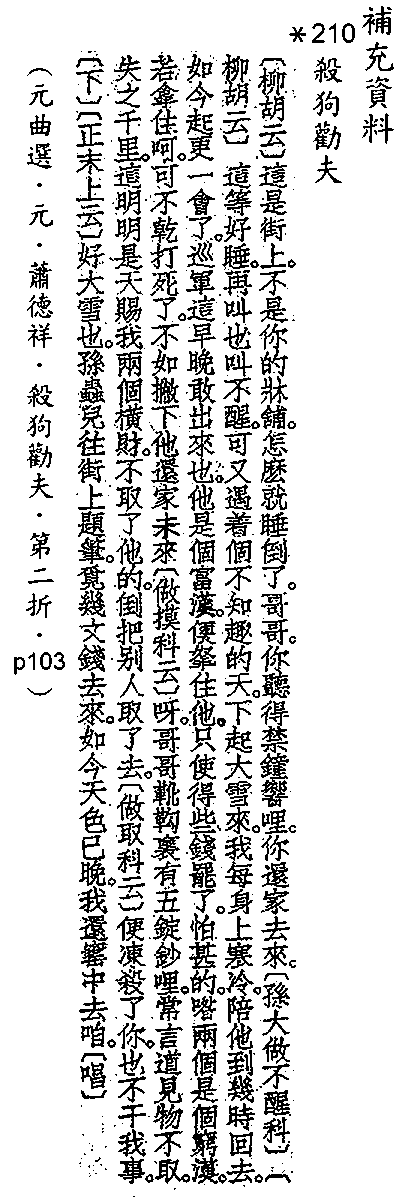 補充資料
＊210 殺狗勸夫
〔柳胡云〕這是街上。不是你的牀鋪。怎麽就睡倒了。哥哥。你聽得禁鐘響哩。你還家去來。〔孫大做不醒科〕〔
柳胡云〕這等好睡。再叫也叫不醒。可又遇着個不知趣的天。下起大雪來。我每身上寒冷。陪他到幾時回去。
如今起更一會了。巡軍這早晚敢出來也。他是個富漢。便拏住他。只使得些錢罷了。怕甚的。喒兩個是個窮漢。
若拏住呵。可不乾打死了。不如撇下他還家未來〔做摸科云〕呀。哥哥靴靿裏有五錠鈔哩。常言道見物不取。
失之千里。這明明是天賜我兩個橫財。不取了他的。倒把別人取了去。〔做取科云〕便凍殺了你。也不干我事。
〔下〕〔正末上云〕好大雪也。孫蟲兒往街上題筆。覓幾文錢去來。如今天色已晚。我還窰中去咱。〔唱〕
（元曲選．元．蕭德祥．殺狗勸夫．第二折．p103）